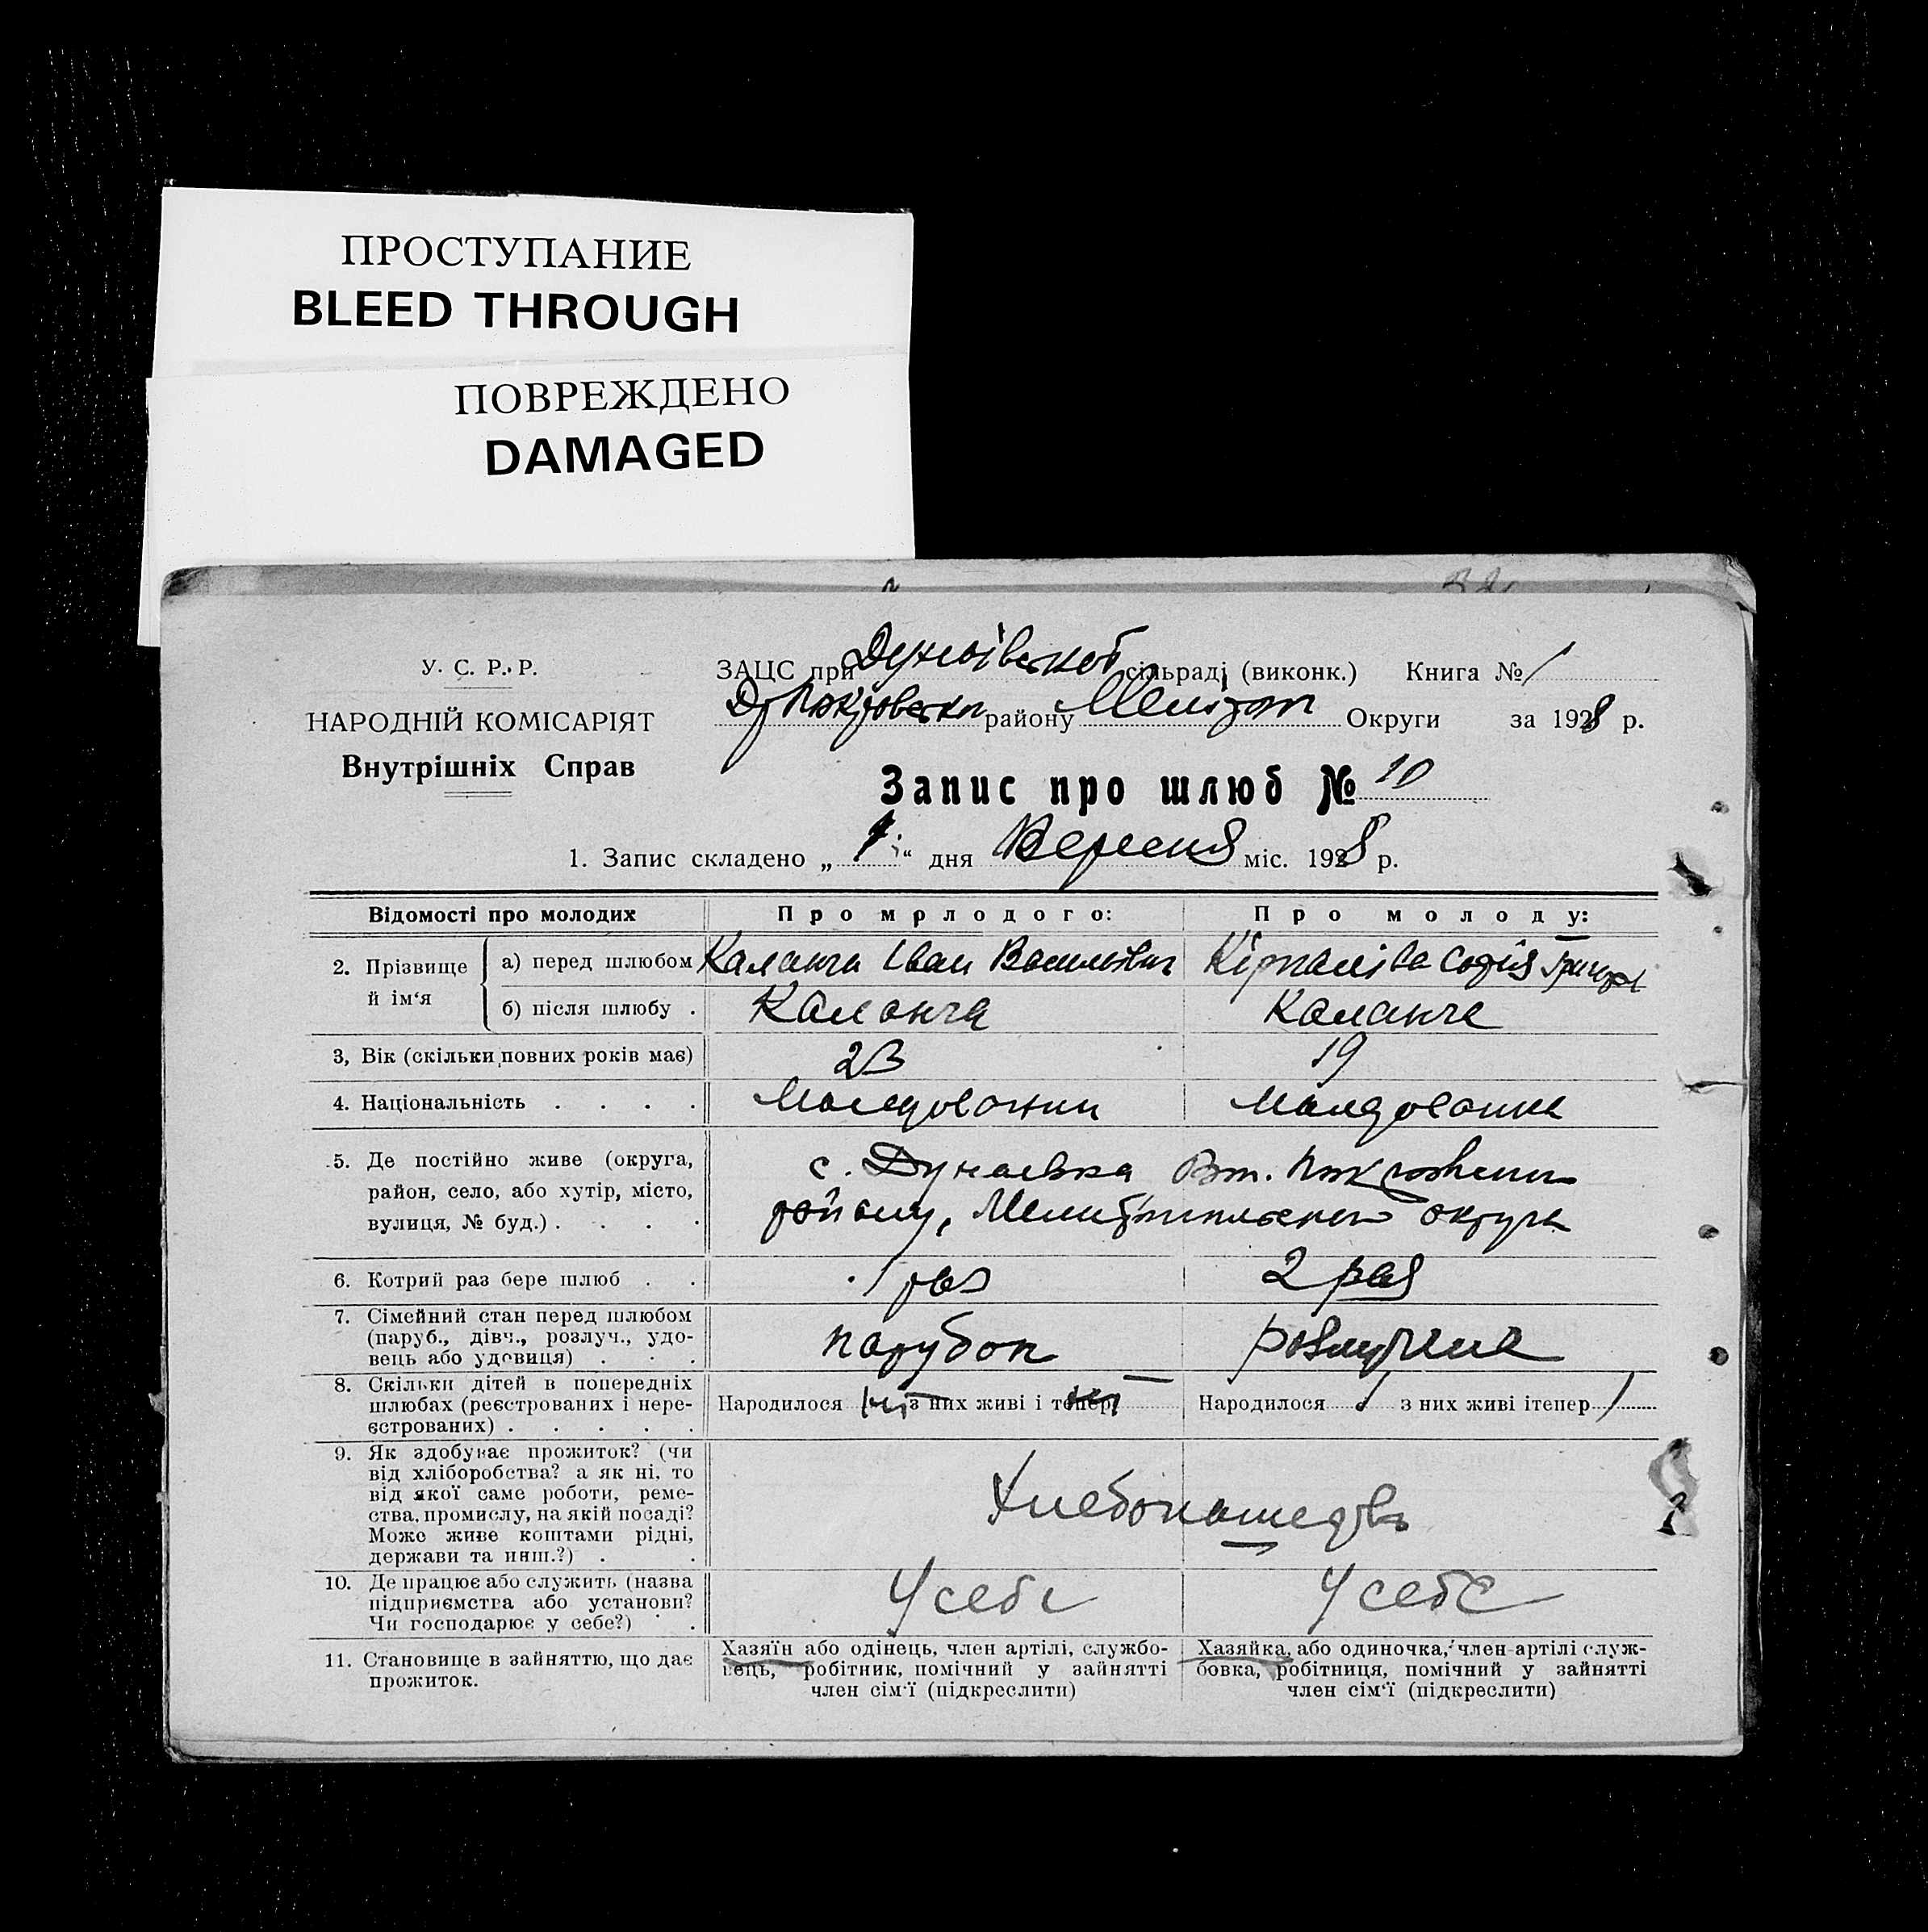 ПРОСТУПАНИЕ
BLEED THROUGH
ПОВРЕЖДЕНО
DAMAGED
У. С. Р. Р.
НАРОДНІЙ КОМІСАРІЯТ
Внутрішніх Справ
ЗАЦС при сільраді (виконк.) Книга № 1
району Меліт Округи за 1928 р.
Запис про шлюб № 10
1. Запис складено „ 1 “ дня Вересня міс. 1928 р.
Відомості про молодих
Про молодого:
Про молоду:
2. Прізвище й ім‘я
а) перед шлюбом Каланча Іван Васильович
Софія
б) після шлюбу . Каланча
Каланча
3, Вік (скільки повних років має) 23 19
4. Національність . . . . Молдованин Молдованка
5. Де постійно живе (округа, с. Дунаевка Вт. Покровського
район, село, або хутір, місто, району, Мелитопольской округи
вулиця, № буд.) . . . .
6. Котрий раз бере шлюб . . 1 раз 2 раз
7. Сімейний стан перед шлюбом
(паруб., дівч., розлуч., удо- парубок розлучена
вець або удовиця) . . .
8. Скільки дітей в попередніх
шлюбах (реєстрованих і нере- Народилося ні з них живі і тепер ні Народилося 1 з них живі ітепер 1
єстрованих) . . . . .
9. Як здобуває прожиток? (чи
від хліборобства? а як ні, то
від якої саме роботи, реме-
ства, промислу, на якій посаді?
Може живе коштами рідні,
держави та инш.?) . .
10. Де працює або служить (назва
підприємства або установи? У себе У себе
Чи господарює у себе?) .
11. Становище в зайняттю, що дає
прожиток.
Хазяїн або одінець, член артілі, службо-
вець, робітник, помічний у зайнятті
член сім‘ї (підкреслити)
Хазяйка, або одиночка, член артілі служ-
бовка, робітниця, помічний у зайнятті
член сім‘ї (підкреслити)